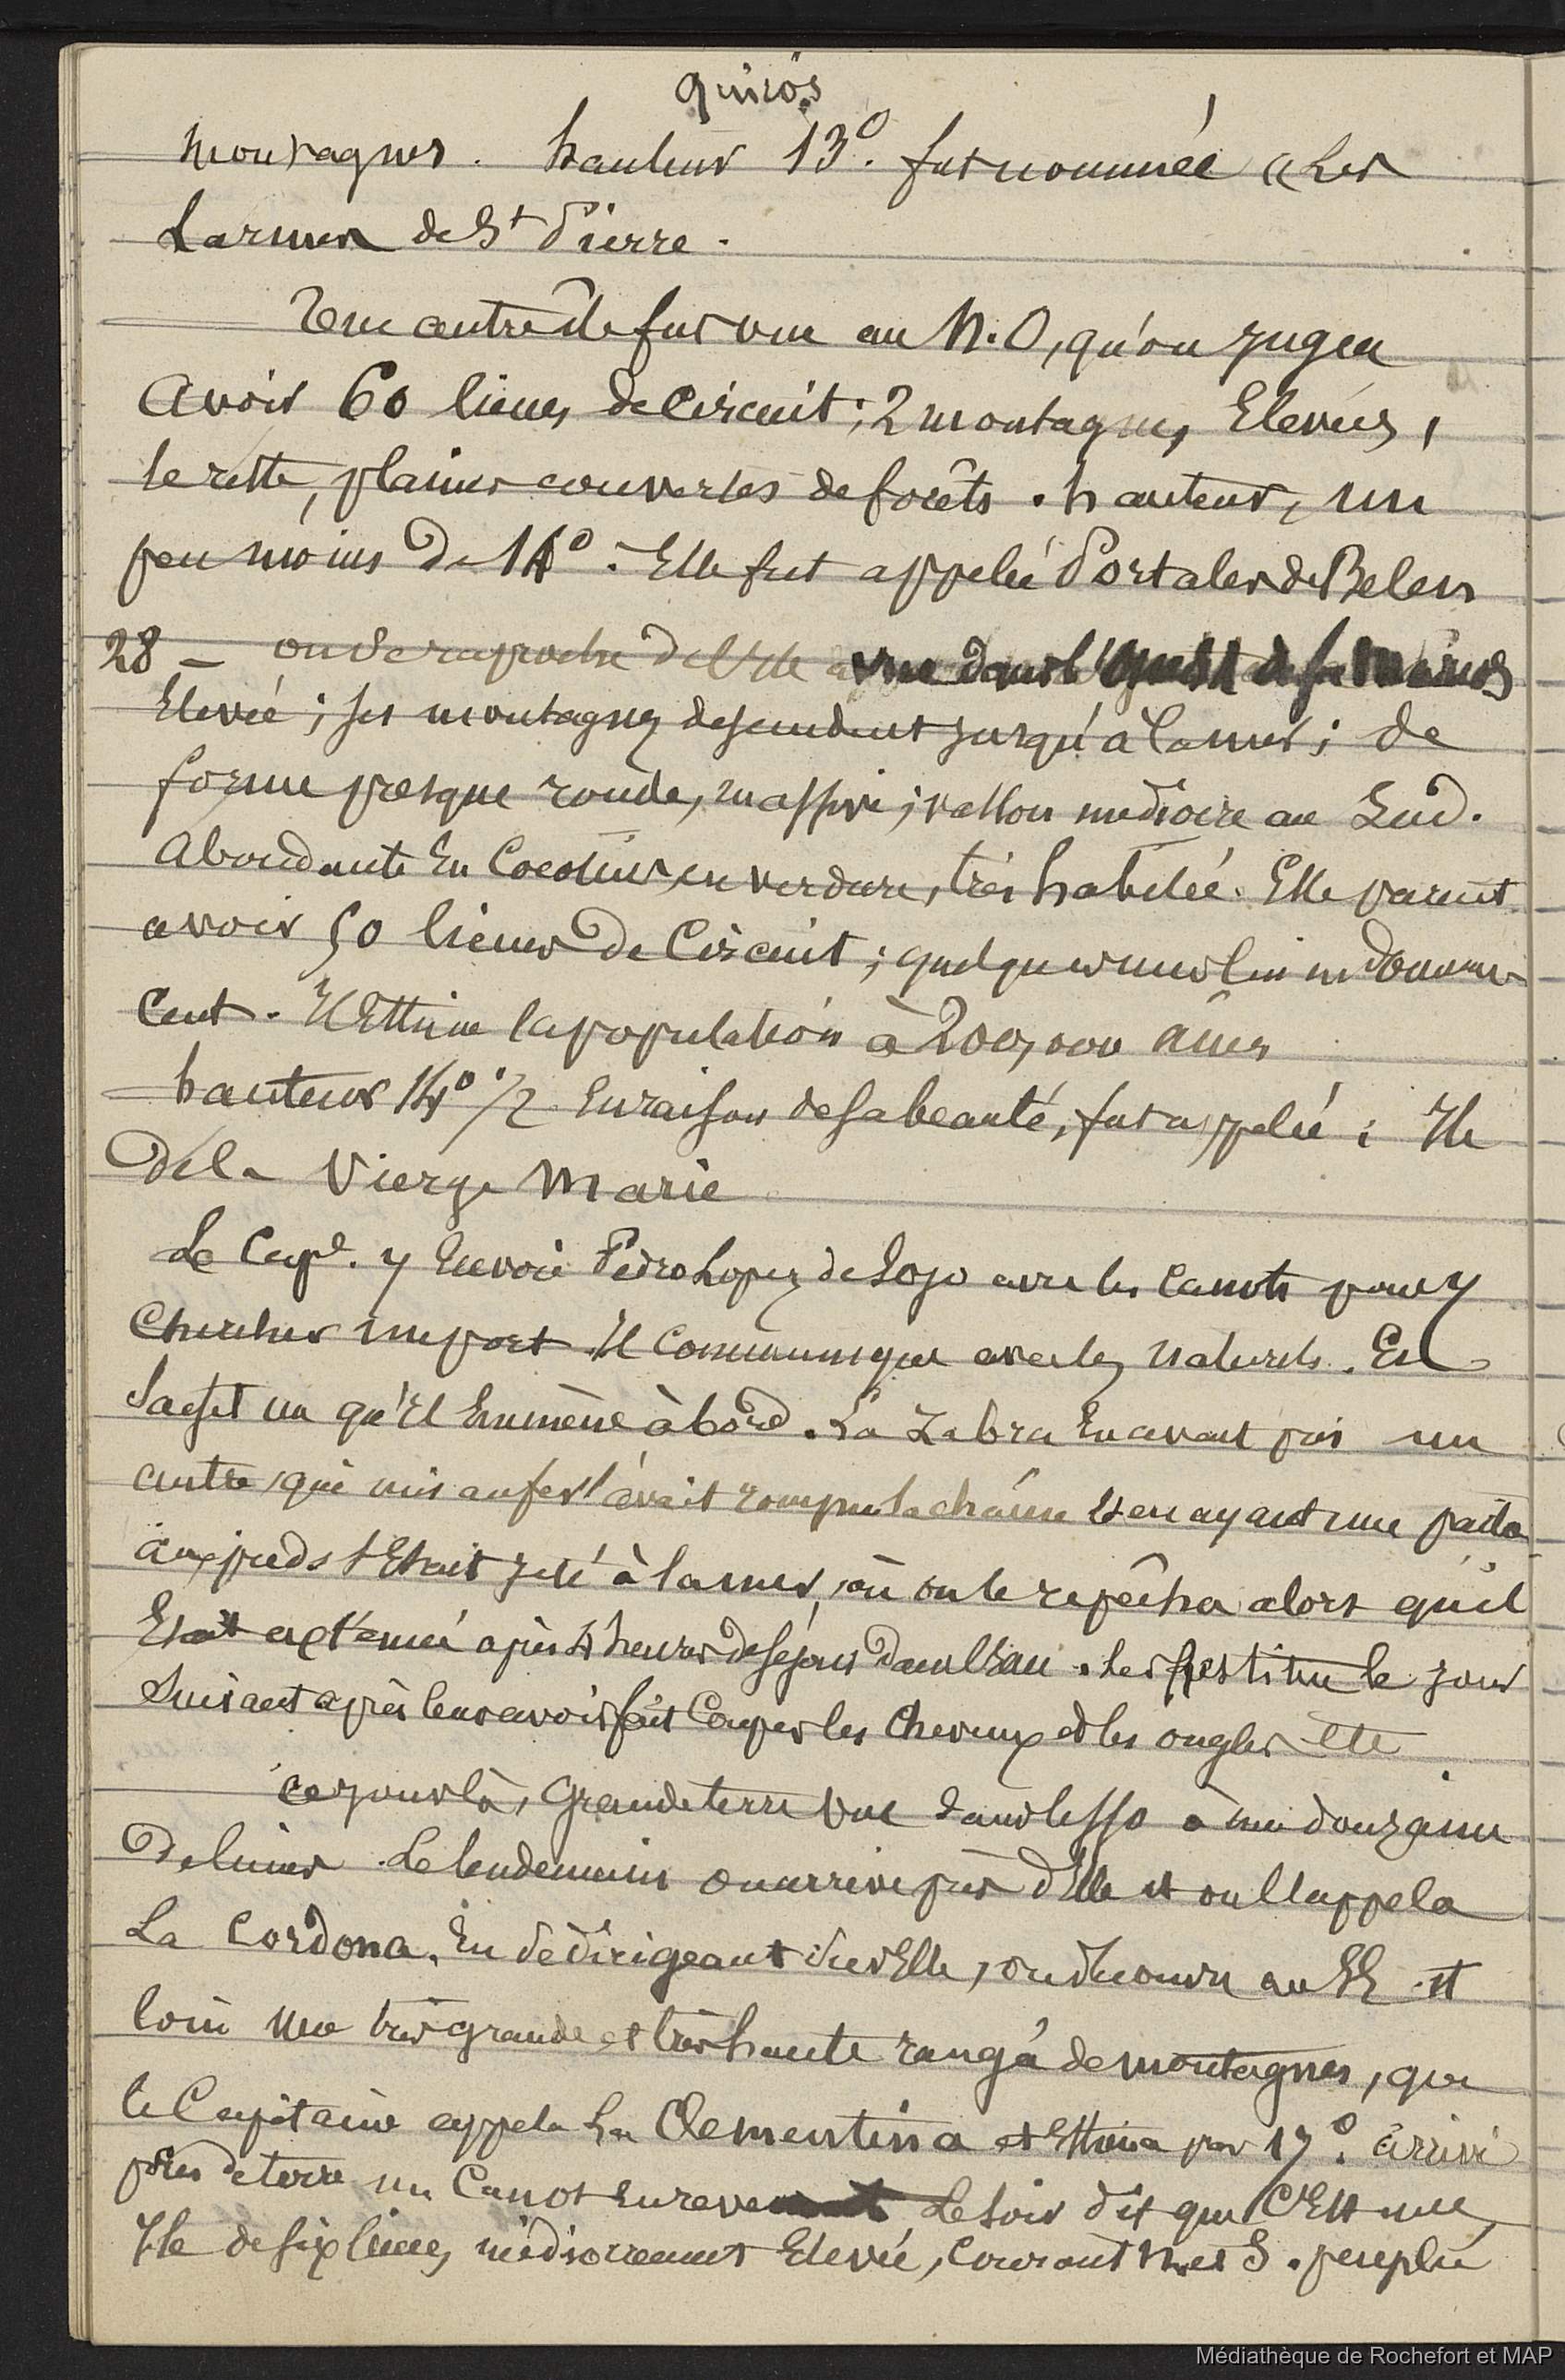 Quiros
montagnes. hauteur 13°. fut nommée « Les
Larmes de St Pierre.
Une autre île fut vue au N.O, qu'on jugea
avoir 60 lieues de circuit; 2 montagnes Elevées,
le reste, plaines couvertes de forêts. hauteur, un
peu moins de 14°. Elle fut appelée Portales de Belen
28 — on se raproche de l'Ile vue dans l'Ouest
Elevée; ses montagnes descendent jusqu'à la mer; de
forme presque ronde, massive; vallon médiocre au Sud.
Abondante En Cocotiers, en verdure, très habitée. Elle parut
avoir 50 lieues de Circuit; quelques uns lui en donnèrent
Cent. Il Estime la population à 200,000 âmes
hauteur 14° 1/2 En raison de sa beauté, fut appelée: Ile
de la Vierge Marie
Le Cape. y Envoie Pedro Lopez de Sojo avec les Canots pour y
Chercher un port. Il communique avec les naturels. En
saisit un qu'Il Emmène à bord. La Zabra En avait pris un
autre, qui mis aux fers avait rompu la chaîne Et en ayant une partie
aux pieds s'Etait jeté à la mer, où on le repêcha alors qu'il
Etait exténué après 4 heures de séjour dans l'Eau. Les restitue le jour
Suivant après leur avoir fait Couper les Cheveux et les ongles etc
Ce jour là, Grande terre vue dans le SSO à une douzaine
De lieues. Le lendemain on arrive près d'Elle et on l'appela
La Cordona. En se dirigeant vers Elle, on découvre au SE et
loin une très grande et très haute rangée de montagnes, que
le Capitaine appela La Clementina et Estima par 17°. Arrivé
près de terre un Canot En revenant Le soir dit que C'Est une
Ile de six lieues, médiocrement Elevée, Courant N et S. peuplée
Médiathèque de Rochefort et MAP